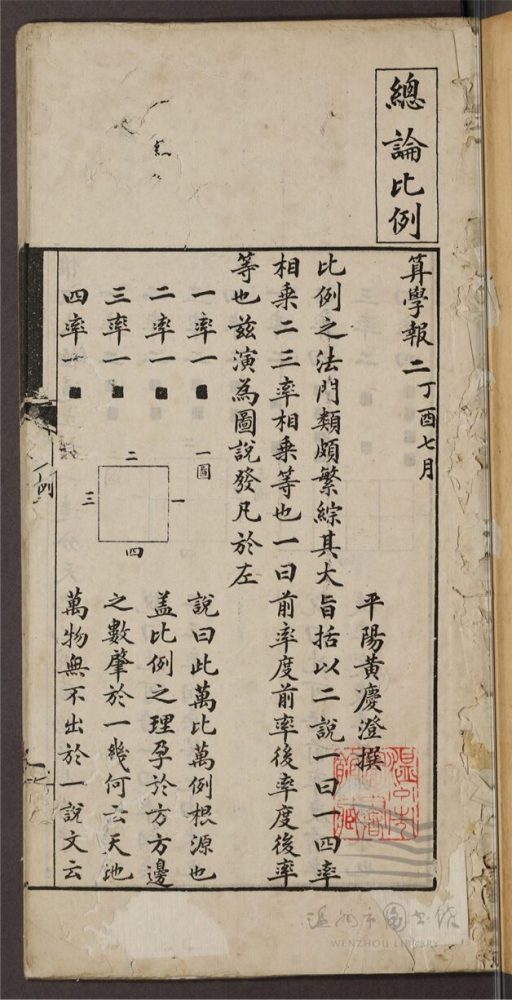 總論比例
算學報二 丁酉七月
平陽黃慶澄撰
比例之法門類頗繁綜其大旨括以二說一曰一四率
相乘二三率相乘等也一曰前率度前率後率度後率
等也茲演為圖說發凡於左
一率一
二率一
三率一
四率一
一圖
一
二
三
四
說曰此萬比萬例根源也
蓋比例之理孕於方方邊
之數肇於一幾何云天地
萬物無不出於一說文云
例
溫州市圖書館
WENZHOU LIBRARY